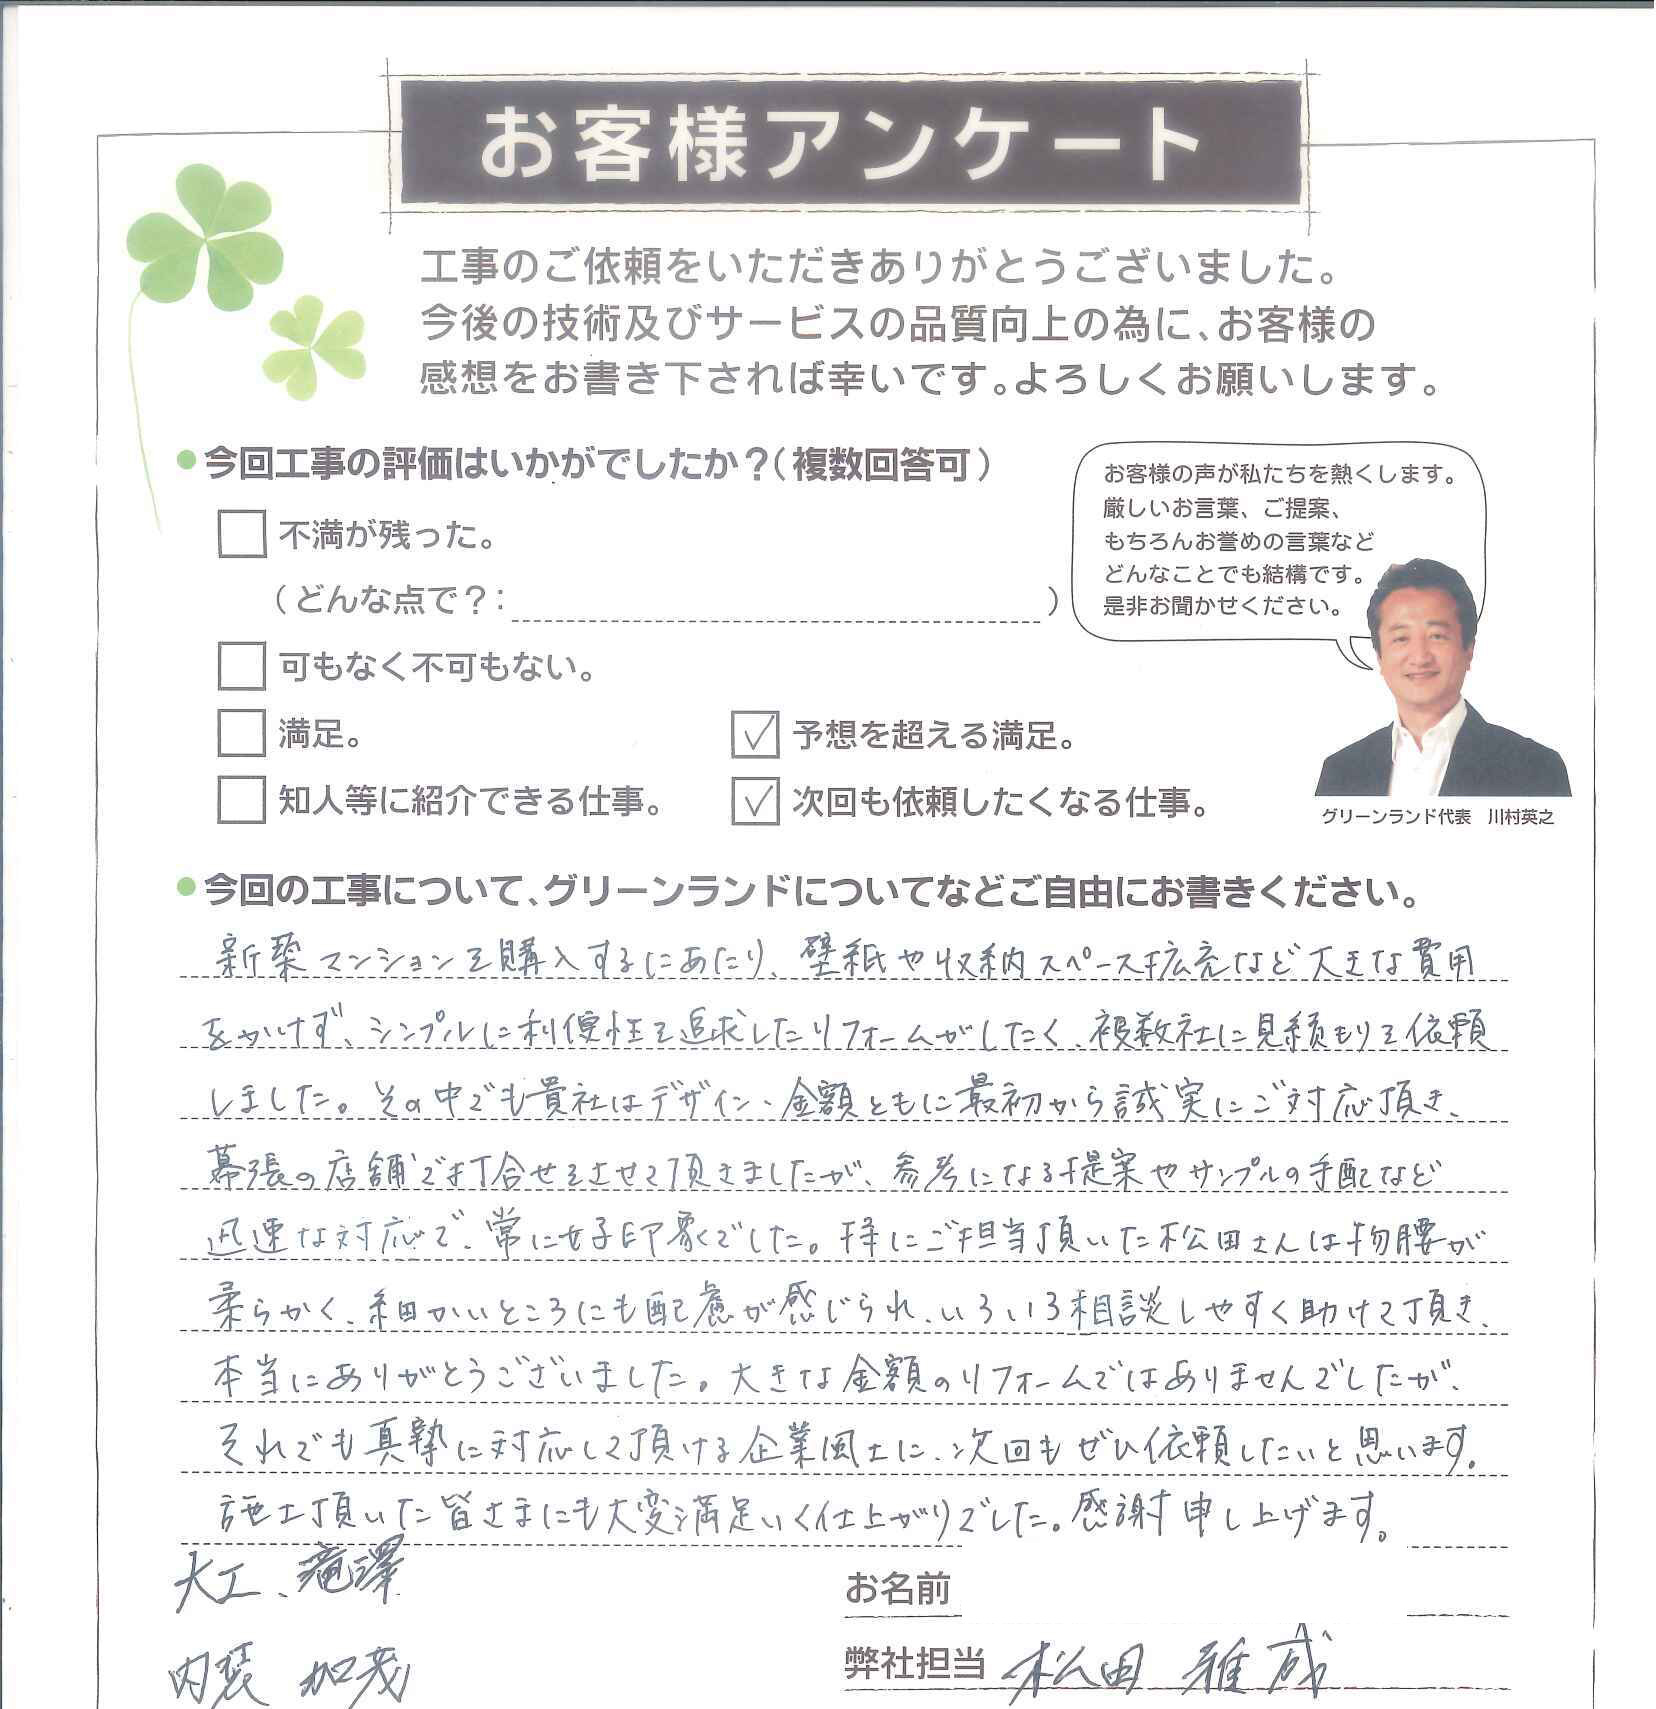 お客様アンケート
工事のご依頼をいただきありがとうございました。
今後の技術及びサービスの品質向上の為に、お客様の
感想をお書き下されば幸いです。よろしくお願いします。
今回工事の評価はいかがでしたか？（複数回答可）
不満が残った。
（どんな点で？：　）
可もなく不可もない。
満足。
✓ 予想を超える満足。
知人等に紹介できる仕事。
✓ 次回も依頼したくなる仕事。
お客様の声が私たちを熱くします。
厳しいお言葉、ご提案、
もちろんお誉めの言葉など
どんなことでも結構です。
是非お聞かせください。
グリーンランド代表　川村英之
今回の工事について、グリーンランドについてなどご自由にお書きください。
新築マンションを購入するにあたり、壁紙や収納スペース拡充など大きな費用
をかけず、シンプルに利便性を追求したリフォームがしたく、複数社に見積もりを依頼
しました。その中でも貴社はデザイン、金額ともに最初から誠実にご対応頂き、
幕張の店舗で打合せをさせて頂きましたが、参考になる提案やサンプルの手配など
迅速な対応で、常に好印象でした。特にご担当頂いた松田さんは物腰が
柔らかく、細かいところにも配慮が感じられ、いろいろ相談しやすく助けて頂き、
本当にありがとうございました。大きな金額のリフォームではありませんでしたが、
それでも真摯に対応して頂ける企業風土に、次回もぜひ依頼したいと思います。
施工頂いた皆さまにも大変満足いく仕上がりでした。感謝申し上げます。
大工、滝澤
内装 加茂
お名前
弊社担当 松田 雅成